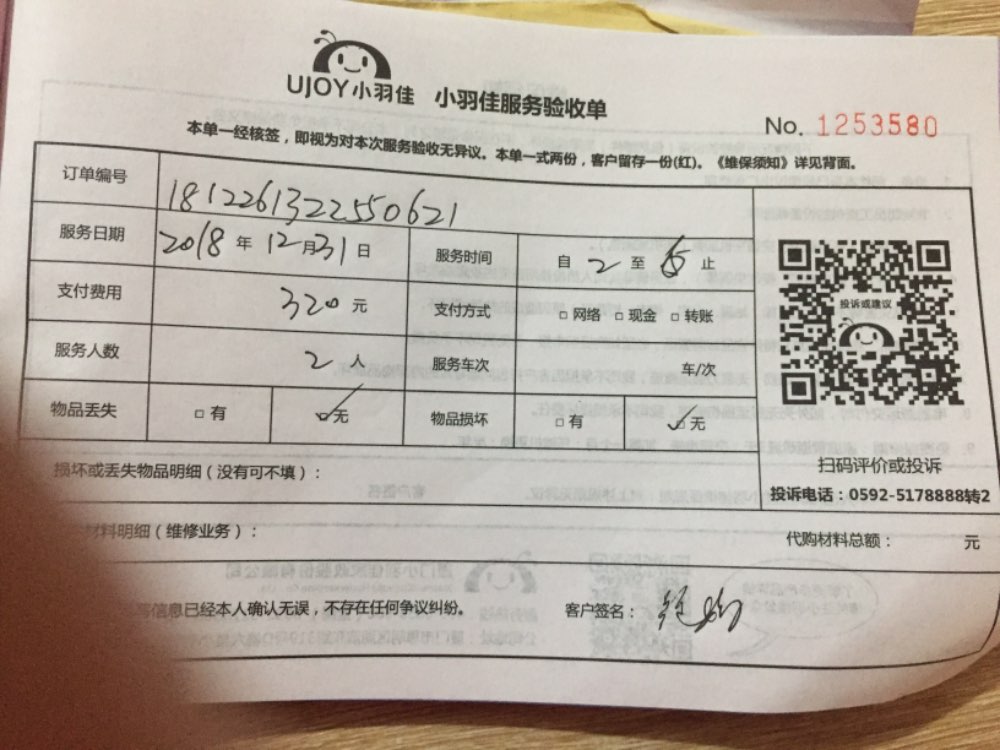 UJOY小羽佳 小羽佳服务验收单
No. 1253580
本单一经核签，即视为对本次服务验收无异议。本单一式两份，客户留存一份(红)。《维保须知》详见背面。
订单编号 1812261322550621
服务日期 2018 年 12 月 31 日 服务时间 自 2 至 6 止
支付费用 320 元 支付方式 □ 网络 □ 现金 □ 转账
投诉或建议
服务人数 2 人 服务车次 车/次
物品丢失 □ 有 ☑ 无 物品损坏 □ 有 ☑ 无
扫码评价或投诉
损坏或丢失物品明细（没有可不填）：
投诉电话：0592-5178888转2
材料明细（维修业务）： 代购材料总额： 元
信息已经本人确认无误，不存在任何争议纠纷。 客户签名：